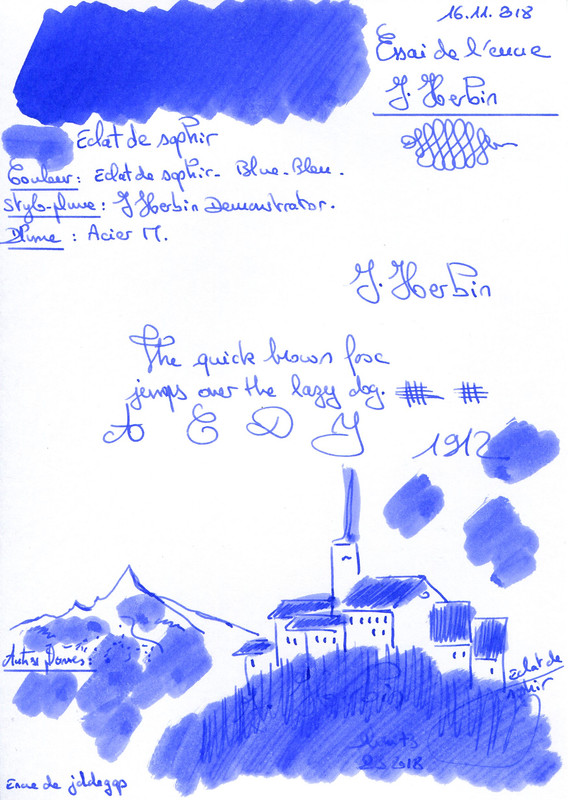 16.11.318
Essai de l'encre
J. Herbin
Eclat de saphir
Couleur: Eclat de saphir - Blue-Bleu.
Stylo-plume: J Herbin Demonstrator.
Plume : Acier M.
J. Herbin
The quick brown fox
jumps over the lazy dog.
A E D J
1912
Autres Dames:
Eclat de
saphir
2018
Encre de jdddgqs